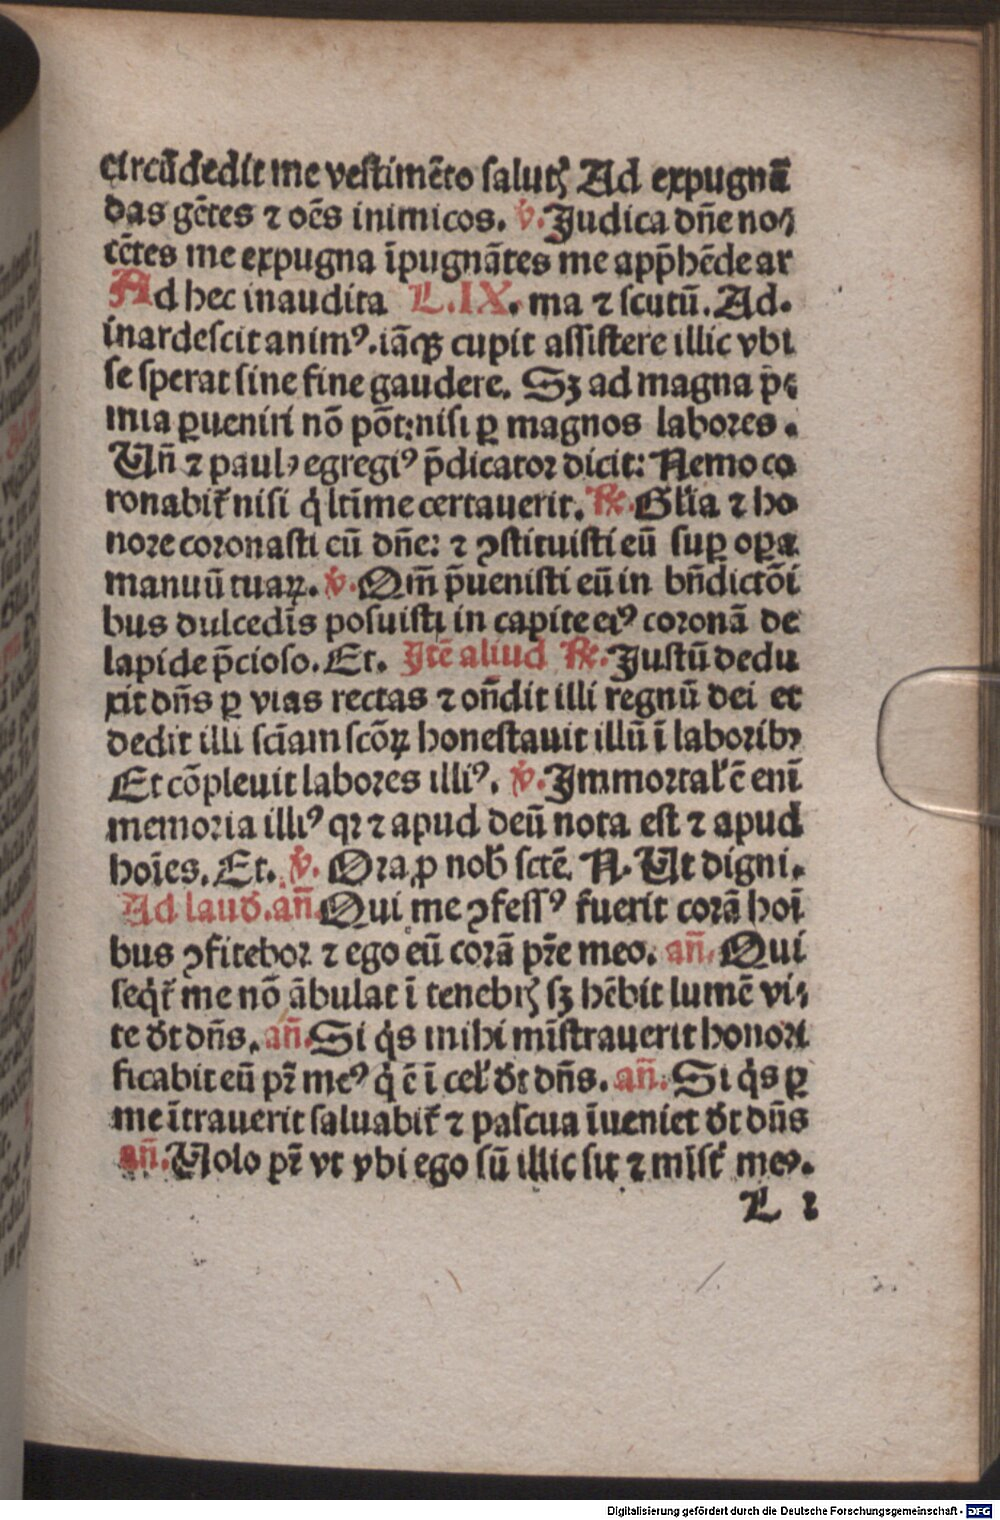 circūdedit me vestimēto salutꝭ Ad expugnā
das gētes ⁊ oēs inimicos. v̇. Judica dn̄e no⸗
cētes me expugna īpugnātes me app̄hēde ar
Ad hec inaudita L.IX. ma ⁊ scutū. Ad.
inardescit animꝰ. iāqꝫ cupit assistere illic vbi
se sperat sine fine gaudere. Sꝫ ad magna p̄⸗
mia ꝑueniri nō pōt: nisi ꝑ magnos labores.
Un̄ ⁊ paulꝰ egregiꝰ p̄dicator dicit: Nemo co
ronabit᷑ nisi q̇ ltīme certauerit. ℞. Gl̓ia ⁊ ho
nore coronasti eū dn̄e: ⁊ ꝯstituisti eū suꝑ oꝑa
manuū tuaꝝ. v̇. Qm̄ p̄uenisti eū in bn̄dictōi
bus dulcedīs posuisti in capite eiꝰ coronā de
lapide p̄cioso. Et. Itē aliud ℞. Justū dedu
xit dn̄s ꝑ vias rectas ⁊ on̄dit illi regnū dei et
dedit illi sciam̄ scōꝝ honestauit illū ī laboribꝰ
Et cōpleuit labores illiꝰ. v̇. Immortal̓ ē enī
memoria illiꝰ qꝛ ⁊ apud deū nota est ⁊ apud
hoīes. Et. v̇. Ora ꝓ nob̓ sctē. N. Ut digni.
Ad laud̓. an̄. Qui me ꝯfessꝰ fuerit corā hoī
bus ꝯfitebor ⁊ ego eū corā pr̄e meo. an̄. Qui
seq̇t᷑ me nō ābulat ī tenebrꝭ sꝫ hēbit lumē vi⸗
te d̓t dn̄s. an̄. Si q̇s mihi mīstrauerit honori
ficabit eū pr̄ meꝰ q̇ ē ī cel̓ d̓t dn̄s. an̄. Si q̇s ꝑ
me ītrauerit saluabit᷑ ⁊ pascua īueniet d̓t dn̄s
an̄. Uolo pr̄ vt vbi ego sū illic sit ⁊ mīst᷑ meꝰ.
L 2
Digitalisierung gefördert durch die Deutsche Forschungsgemeinschaft - DFG